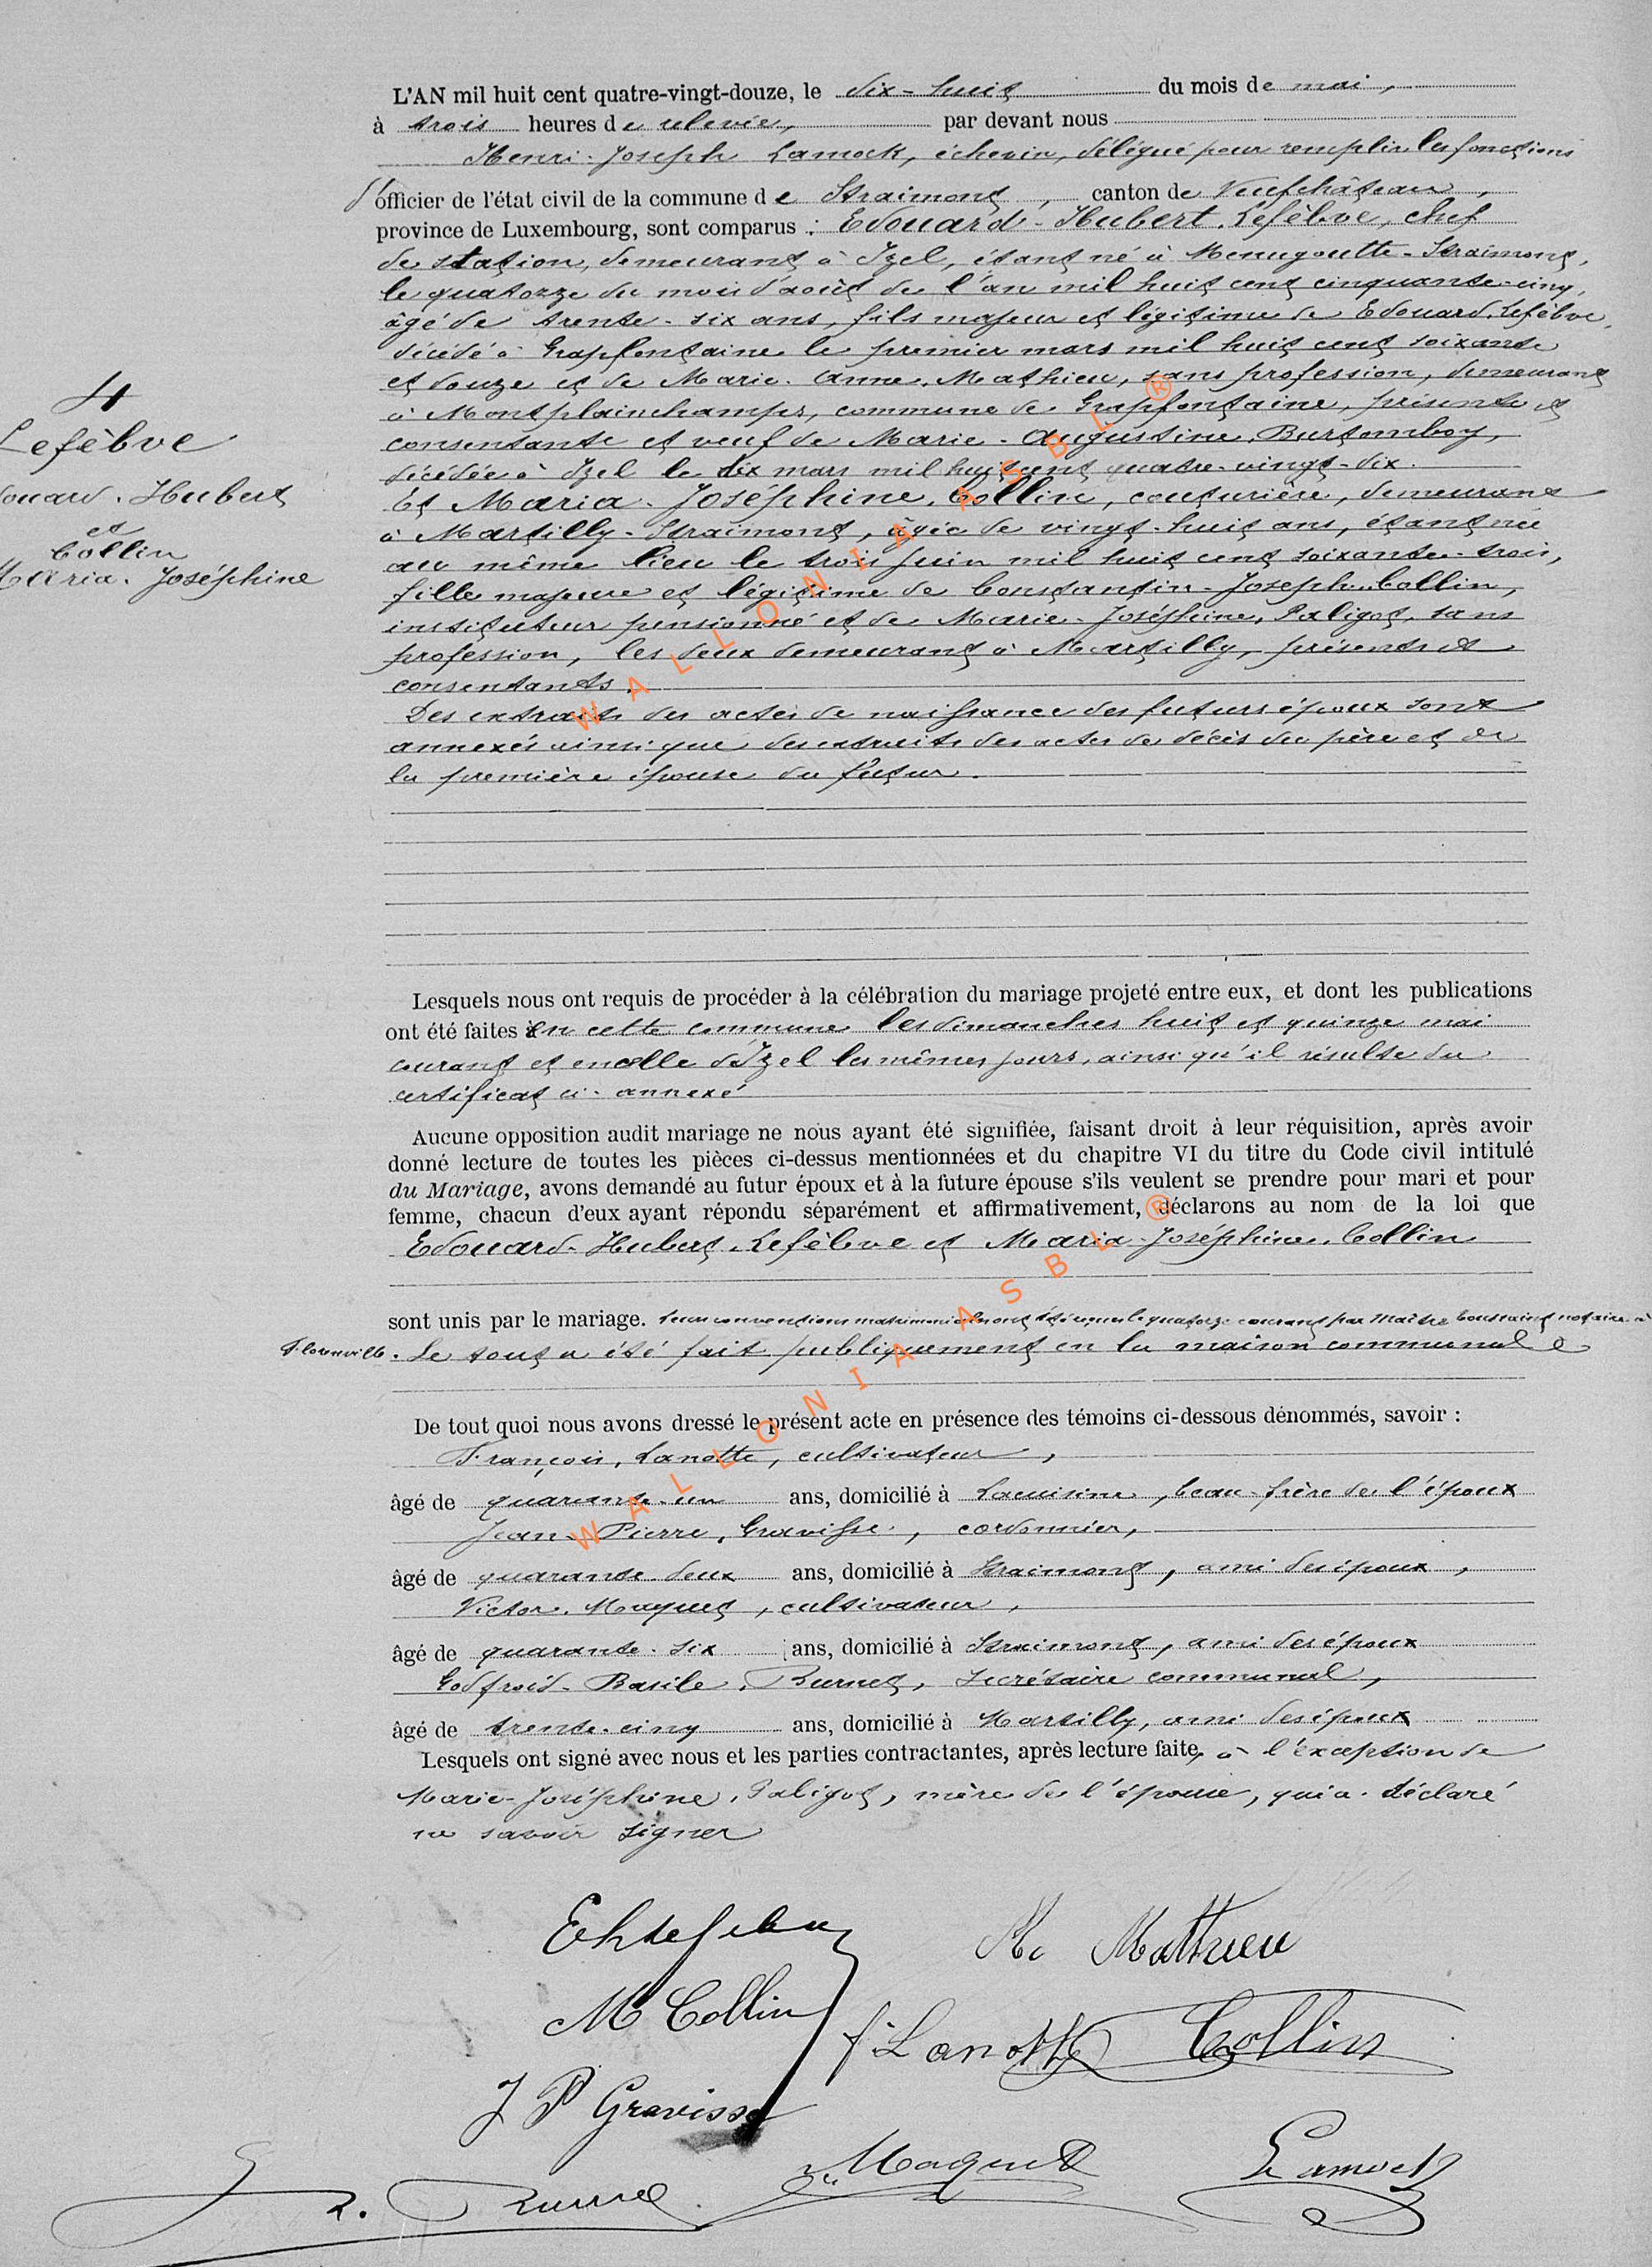 L'AN mil huit cent quatre-vingt-douze, le dix-huit du mois de mai,
à trois heures de relevée, par devant nous
Henri-Joseph Lamock, échevin, délégué pour remplir les fonctions
d'officier de l'état civil de la commune de Straimont, canton de Neufchâteau,
province de Luxembourg, sont comparus : Edouard-Hubert Lefèbve, chef
de station, demeurant à Izel, étant né à Menugoutte-Straimont,
le quatorze du mois d'août de l'an mil huit cent cinquante-cinq,
âgé de trente-six ans, fils majeur et légitime de Edouard Lefèbve,
décédé à Grapfontaine le premier mars mil huit cent soixante
et douze et de Marie-Anne Mathieu, sans profession, demeurant
à Montplainchamps, commune de Grapfontaine, présente et
consentante et veuf de Marie-Augustine Burtomboy,
décédée à Izel le dix mars mil huit cent quatre-vingt-dix.
Et Maria-Joséphine Collin, couturière, demeurant
à Martilly-Straimont, âgée de vingt-huit ans, étant née
au même lieu le trois juin mil huit cent soixante-trois,
fille majeure et légitime de Constantin-Joseph Collin,
instituteur pensionné et de Marie-Joséphine Paligot, sans
profession, les deux demeurant à Martilly, présents et
consentants.
Des extraits des actes de naissance des futurs époux sont
annexés ainsi que des extraits des actes de décès du père et de
la première épouse du futur.
4
Lefèbve
douard-Hubert
et
Collin
Maria-Joséphine
Lesquels nous ont requis de procéder à la célébration du mariage projeté entre eux, et dont les publications
ont été faites en cette commune les dimanches huit et quinze mai
courant et en celle d'Izel les mêmes jours, ainsi qu'il résulte du
certificat ci-annexé
Aucune opposition audit mariage ne nous ayant été signifiée, faisant droit à leur réquisition, après avoir
donné lecture de toutes les pièces ci-dessus mentionnées et du chapitre VI du titre du Code civil intitulé
du Mariage, avons demandé au futur époux et à la future épouse s'ils veulent se prendre pour mari et pour
femme, chacun d'eux ayant répondu séparément et affirmativement, déclarons au nom de la loi que
Edouard-Hubert Lefèbve et Maria-Joséphine Collin
sont unis par le mariage. Leurs conventions matrimoniales ont été reçues le quatorze courant par Maître notaire à
Florenville. Le tout a été fait publiquement en la maison communale
De tout quoi nous avons dressé le présent acte en présence des témoins ci-dessous dénommés, savoir :
François Lanotte, cultivateur,
âgé de quarante-un ans, domicilié à Lacuisine, beau-frère de l'époux
Jean-Pierre Gravisse, cordonnier,
âgé de quarante-deux ans, domicilié à Straimont, ami des époux,
Victor Maquet, cultivateur,
âgé de quarante-six ans, domicilié à Straimont, ami des époux
Godfroid-Basile Burnet, secrétaire communal,
âgé de trente-cinq ans, domicilié à Martilly, ami des époux
Lesquels ont signé avec nous et les parties contractantes, après lecture faite, à l'exception de
Marie-Joséphine Paligot, mère de l'épouse, qui a déclaré
ne savoir signer
EhLefebve
Mathieu
M Collin
f. Lanotte
Collin
J P Gravisse
Maquet
Lamock
WALLONIA ASBL ®
WALLONIA ASBL ®